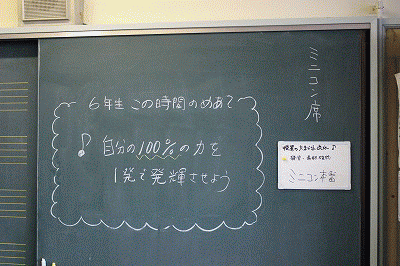 ミニコン席
6年生 この時間のめあて
♪ 自分の100%の力を
1発で発揮させよう
ミニコン本番